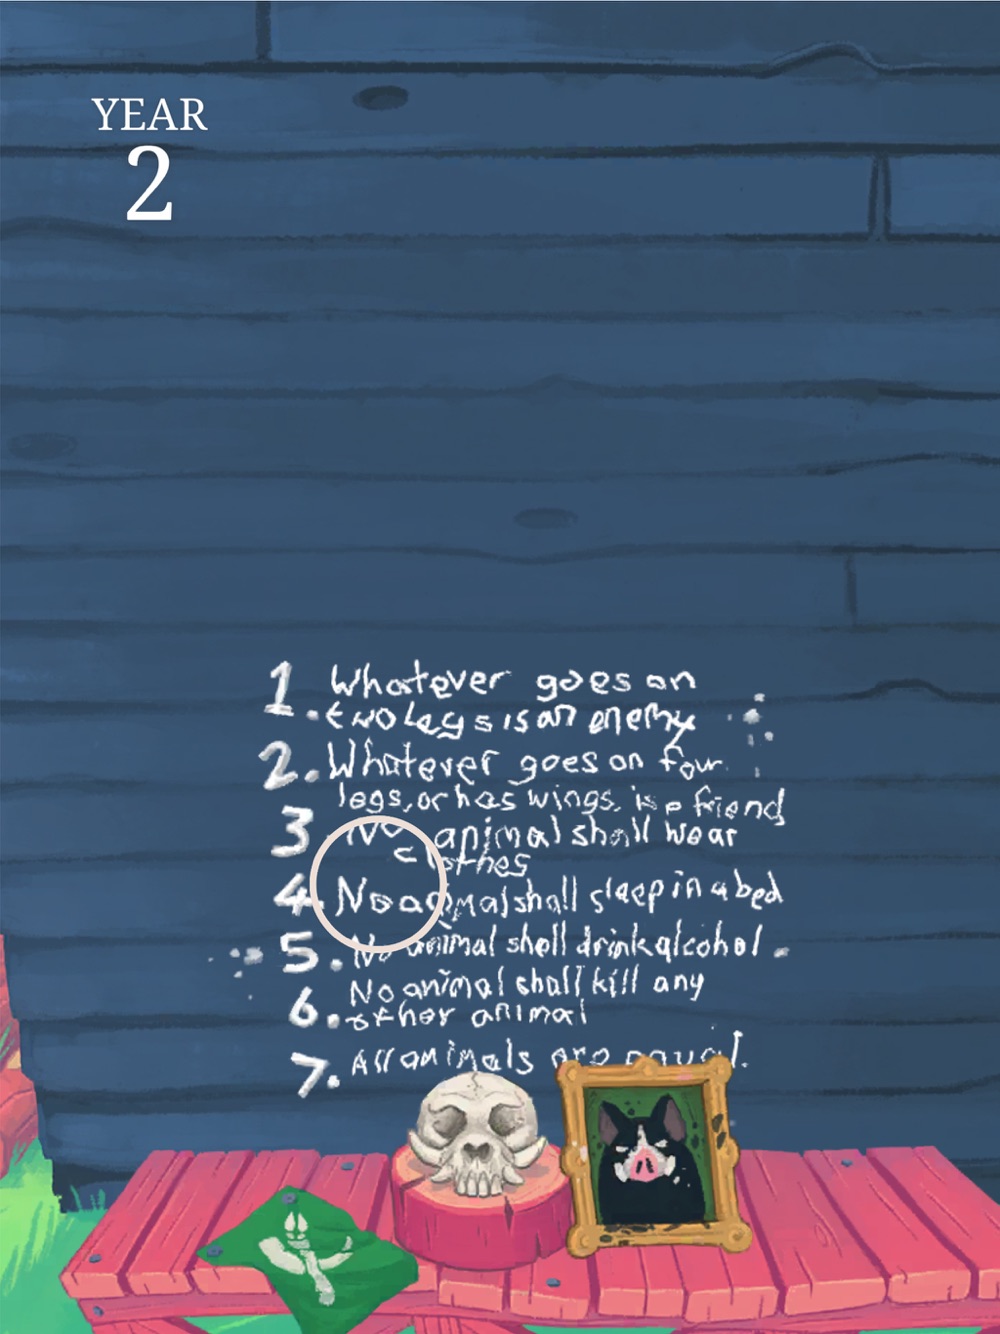 YEAR
2
1. Whatever goes on
two legs is an enemy
2. Whatever goes on four
legs, or has wings, is a friend
3 No animal shall wear
clothes
4. No animal shall sleep in a bed
5. No animal shall drink alcohol.
6. No animal shall kill any
other animal
7. All animals are equal.